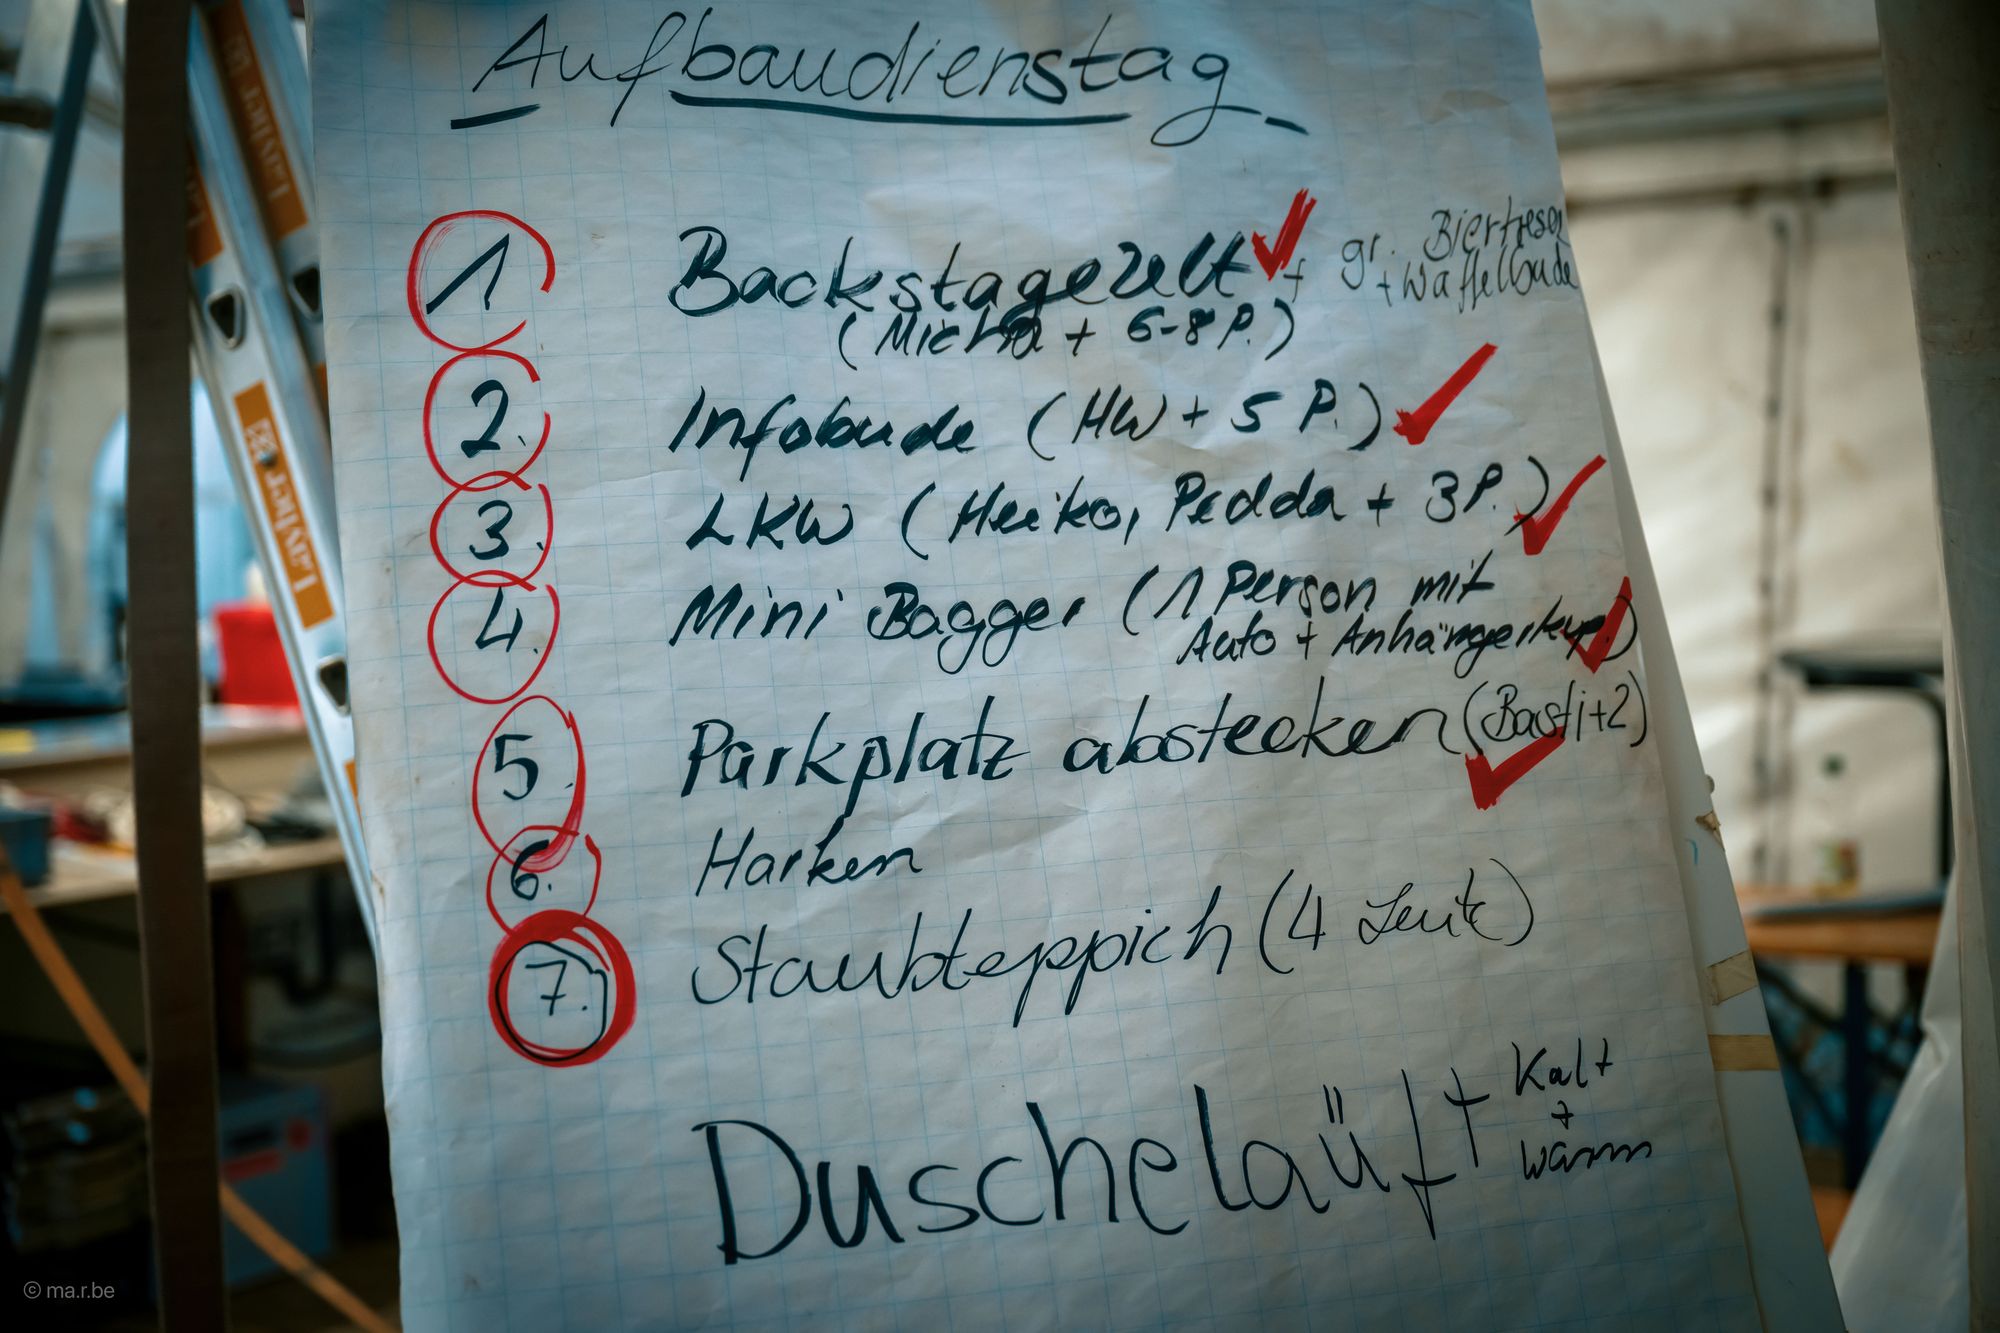 Aufbaudienstag
1 Backstagezelt + gr. Biertresen
+ Waffelbude
(Micha + 6-8 P.)
2. Infobude (HW + 5 P.)
3. LKW (Heiko, Pedda + 3 P.)
4. Mini Bagger (1 Person mit
Auto + Anhängerkup.)
5. Parkplatz abstecken (Basti+2)
6. Harken
7. Staubteppich (4 Leute)
Duscheläuft Kalt
+
warm
Layher
Layher
Layher
© ma.r.be